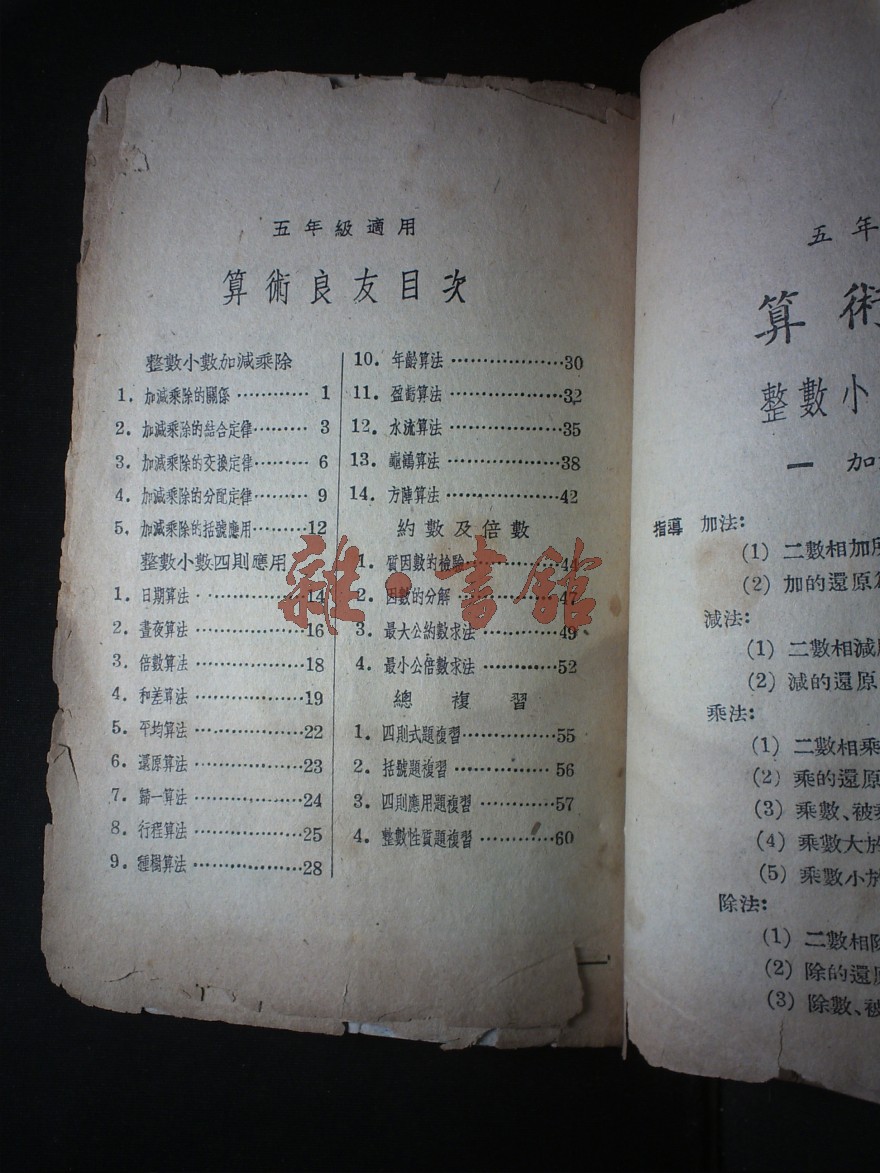 五年級適用
算術良友目次
整數小數加減乘除
1. 加減乘除的關係 ………… 1
2. 加減乘除的結合定律……… 3
3. 加減乘除的交換定律……… 6
4. 加減乘除的分配定律……… 9
5. 加減乘除的括號應用………12
整數小數四則應用
1. 日期算法 …………14
2. 晝夜算法 …………16
3. 倍數算法 …………18
4. 和差算法 …………19
5. 平均算法 …………22
6. 還原算法 …………23
7. 歸一算法 …………24
8. 行程算法 …………25
9. 種樹算法 …………28
10. 年齡算法 …………30
11. 盈虧算法 …………32
12. 水流算法 …………35
13. 龜鶴算法 …………38
14. 方陣算法 …………42
約數及倍數
1. 質因數的檢驗 …………44
2. 因數的分解 …………47
3. 最大公約數求法 …………49
4. 最小公倍數求法 …………52
總複習
1. 四則式題複習…………55
2. 括號題複習 …………56
3. 四則應用題複習 …………57
4. 整數性質題複習 …………60
雜·書館
五年
算術
整數小
一 加
指導 加法:
(1) 二數相加所
(2) 加的還原算
減法:
(1) 二數相減
(2) 減的還原
乘法:
(1) 二數相乘
(2) 乘的還原
(3) 乘數、被
(4) 乘數大於
(5) 乘數小於
除法:
(1) 二數相除
(2) 除的還原
(3) 除數、被